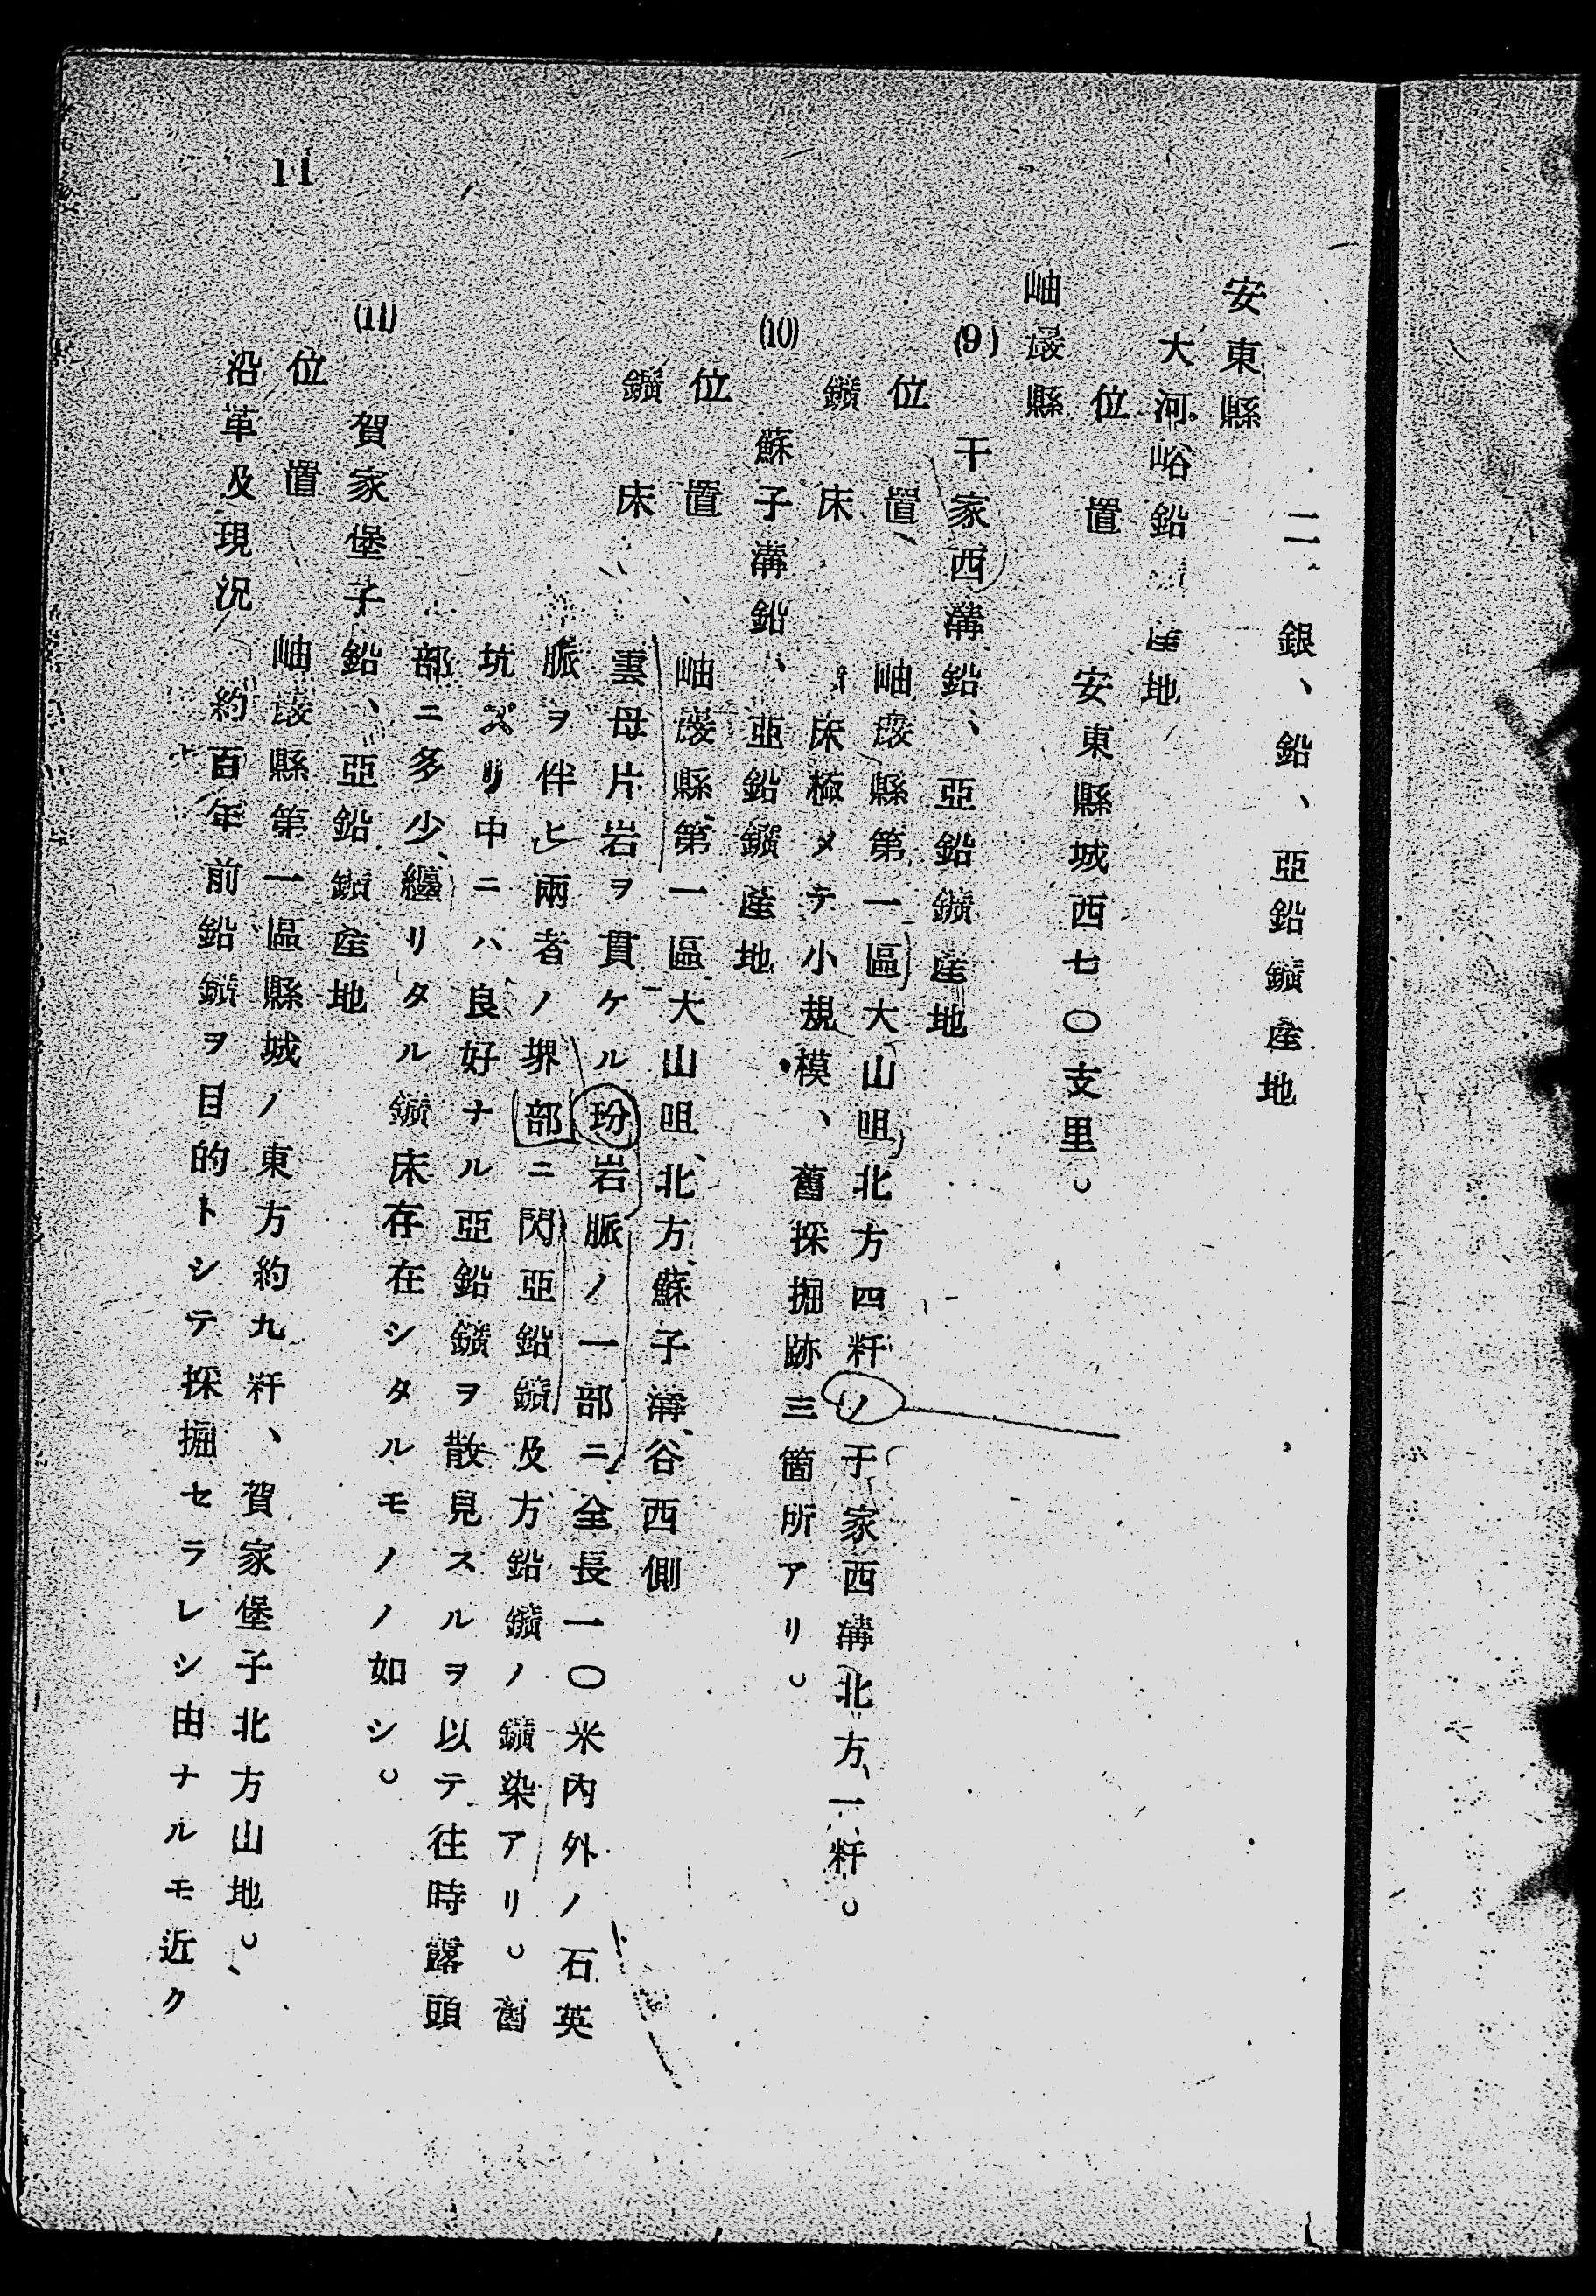 二 銀、鉛、亞鉛鑛産地
安東縣
大河峪鉛 産地
位置 安東縣城西七〇支里。
岫巖縣
(9) 干家西溝鉛、亞鉛鑛産地
位置 岫巖縣第一區大山咀北方四粁ノ于家西溝北方一粁。
鑛床 床極メテ小規模、舊採掘跡三箇所アリ。
(10) 蘇子溝鉛、亞鉛鑛産地
位置 岫巖縣第一區大山咀北方蘇子溝谷西側
鑛床 雲母片岩ヲ貫ケル玢岩脈ノ一部ニ全長一〇米內外ノ石英
脈ヲ伴ヒ兩者ノ堺部ニ閃亞鉛鑛及方鉛鑛ノ鑛染アリ。舊
坑ズリ中ニハ良好ナル亞鉛鑛ヲ散見スルヲ以テ往時露頭
部ニ多少纏リタル鑛床存在シタルモノノ如シ。
(11) 賀家堡子鉛、亞鉛鑛産地
位置 岫巖縣第一區縣城ノ東方約九粁、賀家堡子北方山地。
沿革及現況 約百年前鉛鑛ヲ目的トシテ採掘セラレシ由ナルモ近ク
11